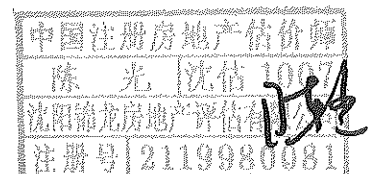 中国注册房地产估价师
陈 光 沈估 1007
沈阳锦龙房地产评估有 公司
注册号 2119980081